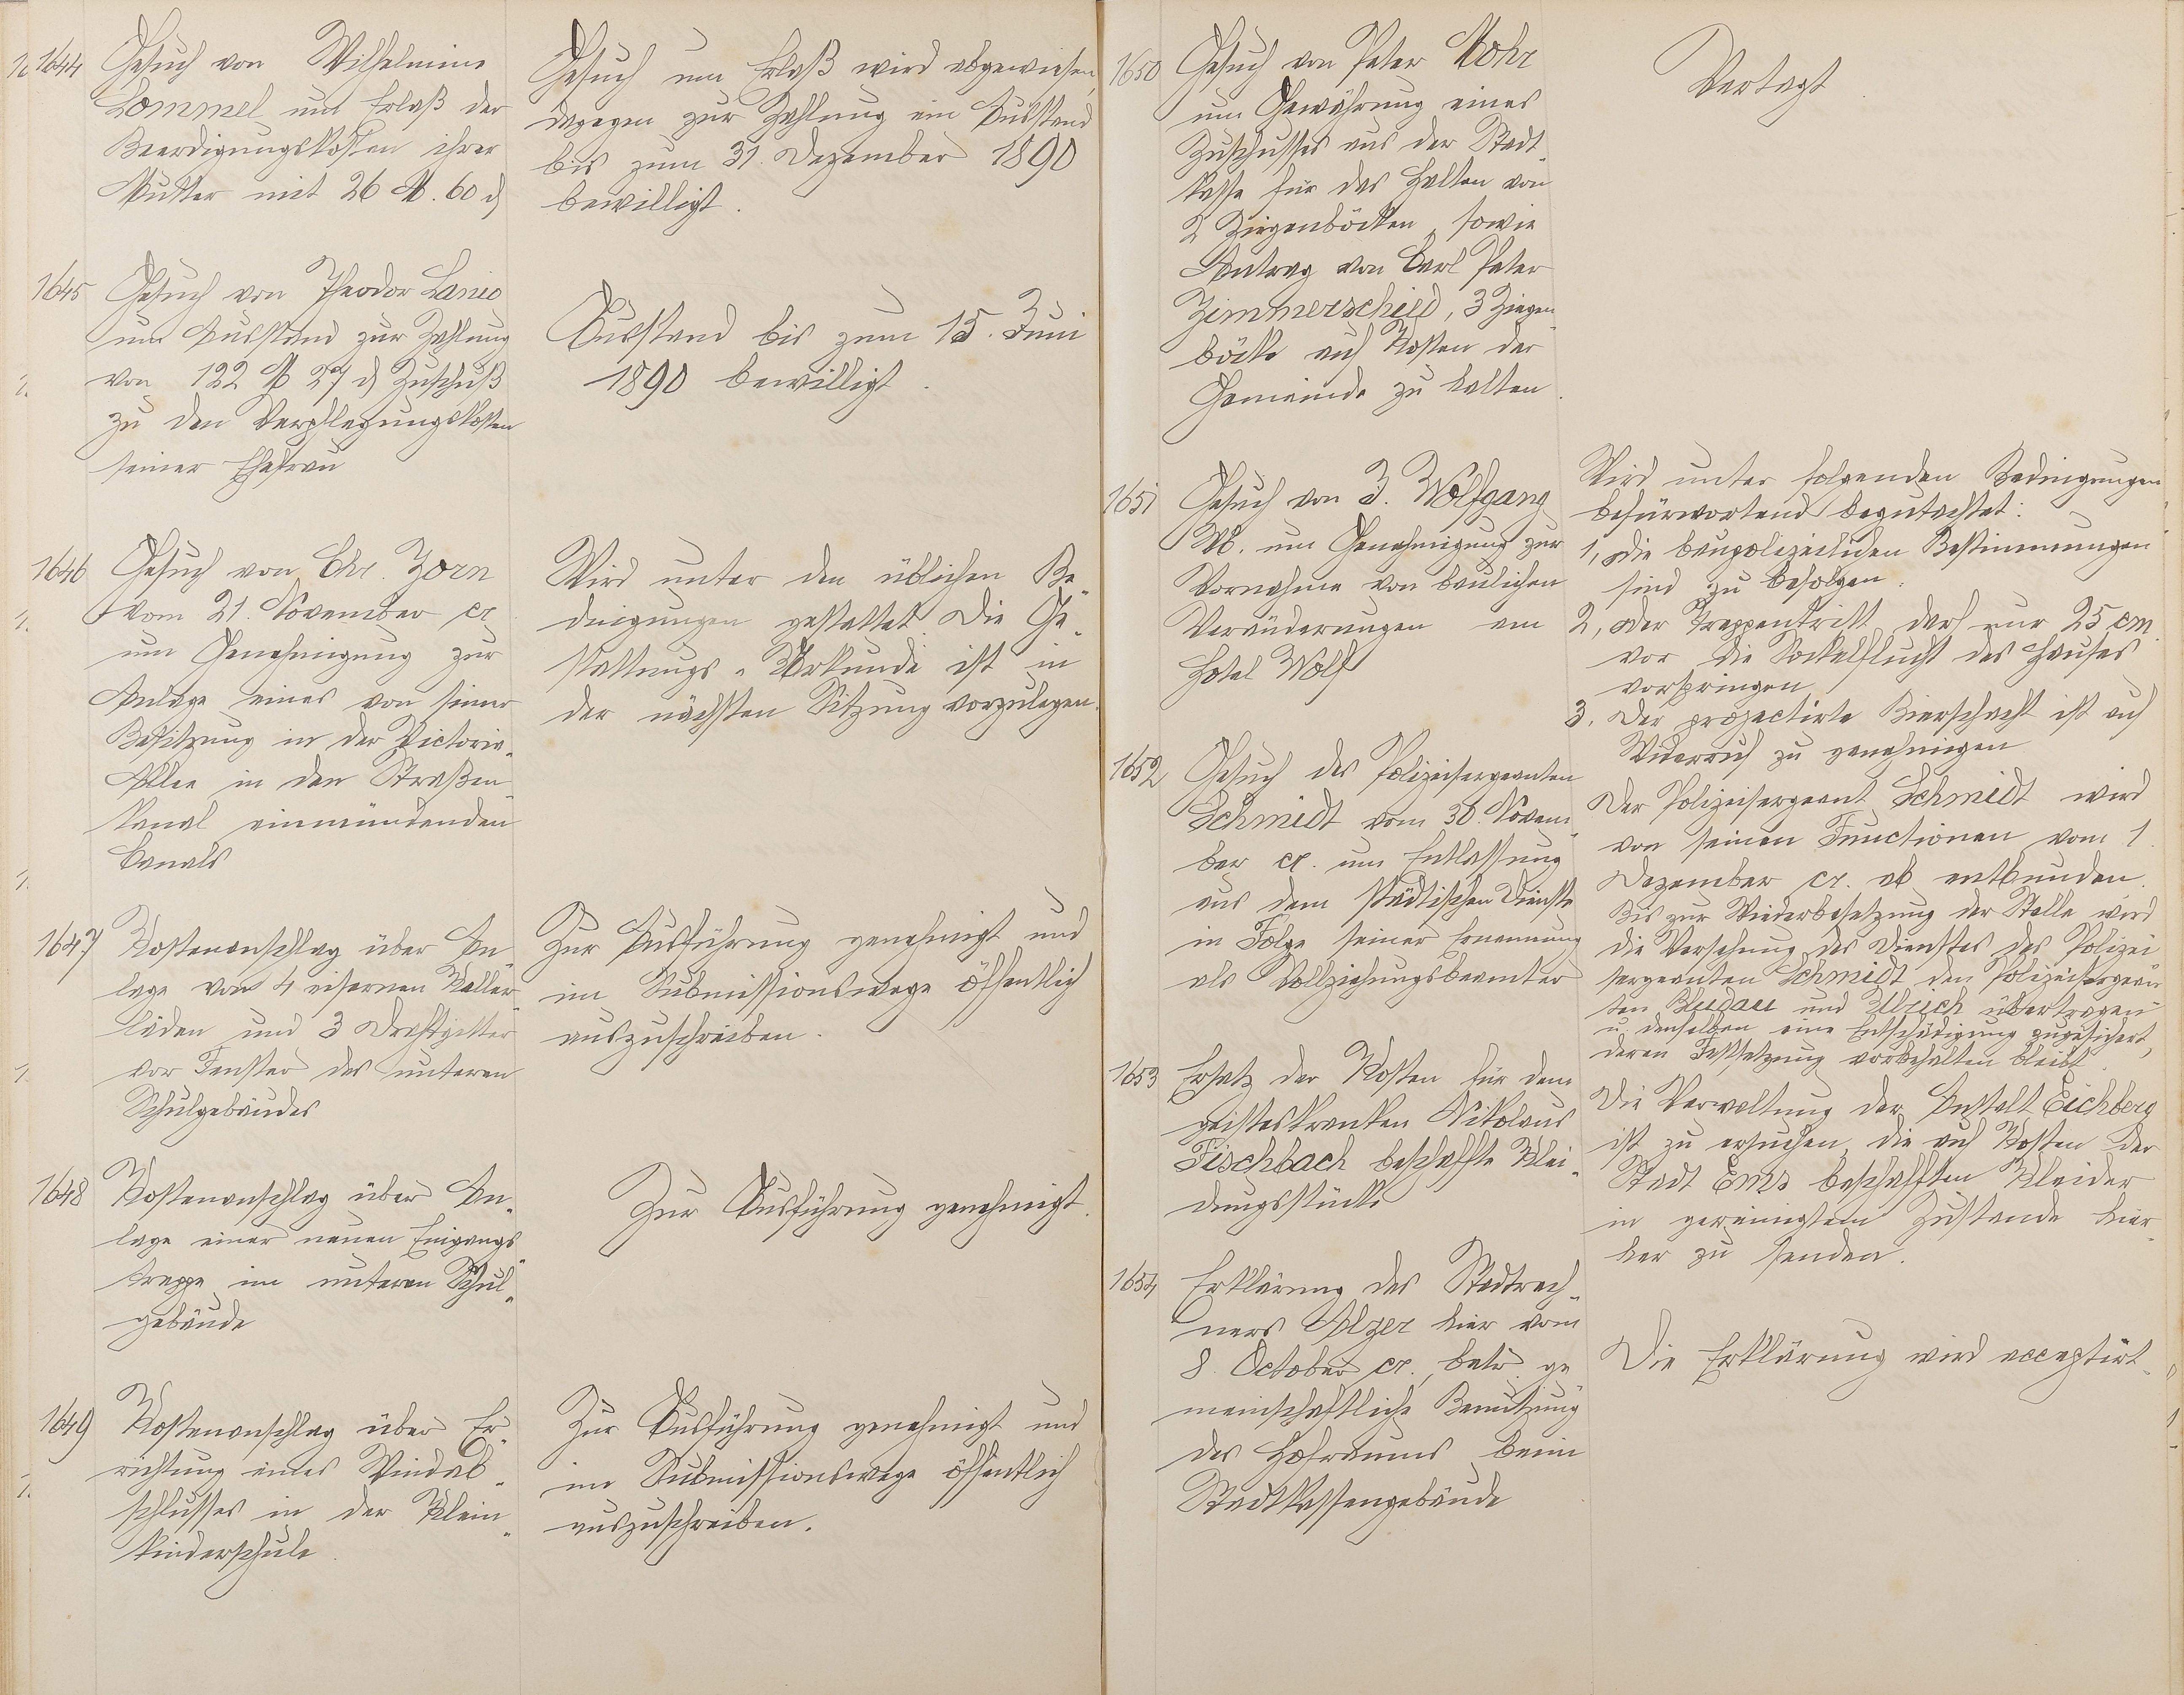 1644
Gesuch von Wilhelmine
Lommel um Erlaß der
Beerdigungskosten ihrer
Mutter mit 26 M. 60 d
Gesuch um Erlaß wird abgewiesen,
dagegen zur Zahlung ein Ausstand
bis zum 31. Dezember 1890
bewilligt.
1645
Gesuch von Theodor Lanio
um Ausstand zur Zahlung
von 122 M 27 d Zuschuß
zu den Verpflegungskosten
seiner Ehefrau
Ausstand bis zum 15. Juni
1890 bewilligt.
1646
Gesuch von Chr. Zorn
vom 21. November cr
um Genehmigung zur
Anlage eines von seiner
Besitzung in der Victoria-
Allee in den Straßen-
kanal einmündenden
Canals
Wird unter den üblichen Be-
dingungen gestattet. Die Ge-
stattungs-Urkunde ist in
der nächsten Sitzung vorzulegen.
1647
Kostenanschlag über An-
lage von 4 eisernen Keller-
läden und 3 Drahtgitter
vor Fenster des unteren
Schulgebäudes
Zur Ausführung genehmigt und
im Submissionswege öffentlich
auszuschreiben.
1648
Kostenanschlag über An-
lage einer neuen Eingangs-
treppe im unteren Schul-
gebäude
Zur Ausführung genehmigt.
1649
Kostenanschlag über Er-
richtung eines Windab-
schlusses in der Klein-
kinderschule.
Zur Ausführung genehmigt und
im Submissionswege öffentlich
auszuschreiben.
1650
Gesuch von Peter Mohr
um Gewährung eines
Zuschusses aus der Stadt-
kasse für das Halten von
2 Ziegenböcken, sowie
Antrag von Carl Peter
Zimmerschied, 3 Ziegen-
böcke auf Kosten der
Gemeinde zu halten.
Vertagt.
1651
Gesuch von J. Wolfgang
W. um Genehmigung zur
Vornahme von baulichen
Veränderungen am
Hotel Wolf
Wird unter folgenden Bedingungen
befürwortend begutachtet:
1, Die baupolizeilichen Bestimmungen
sind zu befolgen.
2, Der Treppentritt darf nur 25 cm.
vor die Sockelflucht des Hauses
vorspringen
3. Der projectirte Bierschacht ist auf
Widerruf zu genehmigen
1652
Gesuch des Polizeisergeanten
Schmidt vom 30. Novem-
ber cr. um Entlassung
aus dem städtischen Dienste
in Folge seiner Ernennung
als Vollziehungsbeamter
Der Polizeisergeant Schmidt wird
von seinen Functionen vom 1.
Dezember cr. ab entbunden.
Bis zur Wiederbesetzung der Stelle wird
die Versehung des Dienstes des Polizei
sergeanten Schmidt den Polizeisergean-
ten Budau und Ulrich übertragen
u. denselben eine Entschädigung zugesichert,
deren Festsetzung vorbehalten bleibt.
1653
Ersatz der Kosten für dem
geisteskranken Nikolaus
Fischbach beschaffte Klei-
dungsstücke
Die Verwaltung der Anstalt Eichberg
ist zu ersuchen, die auf Kosten der
Stadt Ems beschafften Kleider
in gereinigtem Zustande hier-
her zu senden.
1654
Erklärung des Stadtrech-
ners Alzer hier vom
8. October cr., betr. ge
meinschaftliche Benutzung
des Hofraums beim
Stadtkassengebäude
Die Erklärung wird acceptirt.